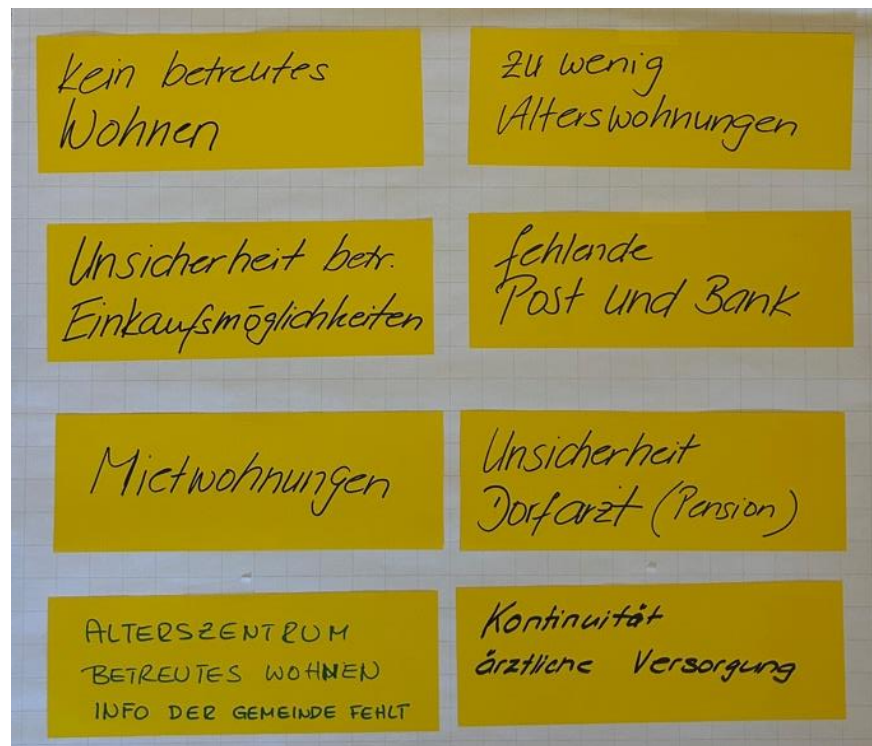 kein betreutes
Wohnen
zu wenig
Alterswohnungen
Unsicherheit betr.
Einkaufsmöglichkeiten
fehlende
Post und Bank
Mietwohnungen
Unsicherheit
Dorfarzt (Pension)
ALTERSZENTRUM
BETREUTES WOHNEN
INFO DER GEMEINDE FEHLT
Kontinuität
ärztliche Versorgung